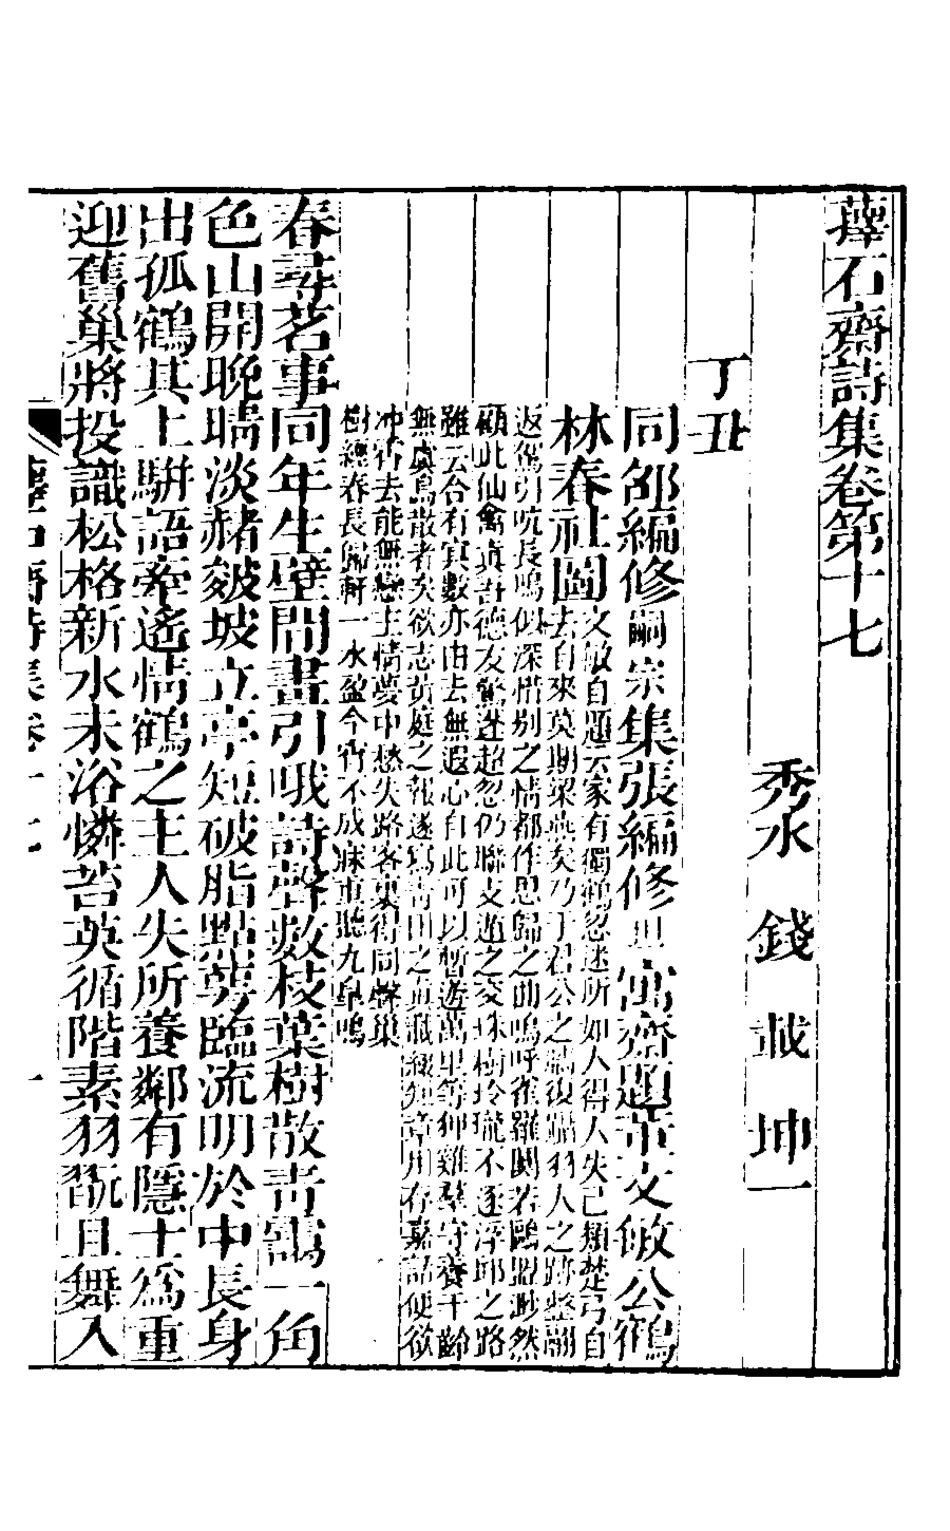 蘀石齋詩集卷第十七
秀水 錢 載 坤一
丁丑
同邵編修嗣宗集張編修坦寓齋題董文敏公鶴
林春社圖
文敏自題云家有獨鶴忽迷所如人得人失已類楚弓自
去自來莫期梁燕矣乃于君公之牆復躡羽人之跡整翮
返駕引吭長鳴似深惜别之情都作思歸之曲嗚呼雀羅闃若鷗盟渺然
顧此仙禽真吾德友驚迷超忽仍聯支遁之交珠樹玲瓏不逐浮邱之路
雖云合有寅數亦由去無遐心自此可以暫遊萬里等狎雞羣守養千齡
無虞鳥散者矣欲志黄庭之報遂寫青田之真潄綴短章用存嘉話便欲
冲霄去能無戀主情夢中愁失路客裏得同聲巢
樹經春長歸軒一水盈今宵不成寐重聽九臯鳴
春尋茗事同年生壁間畫引哦詩聲數枝葉樹散青靄一角
色山開晚晴淡赭皴坡立亭短破脂點萼臨流明於中長身
出孤鶴其上騈語牽遙情鶴之主人失所養鄰有隱士為重
迎舊巢將投識松格新水未浴憐苔英循階素羽翫且舞入
蘀石齋詩集卷十七 一